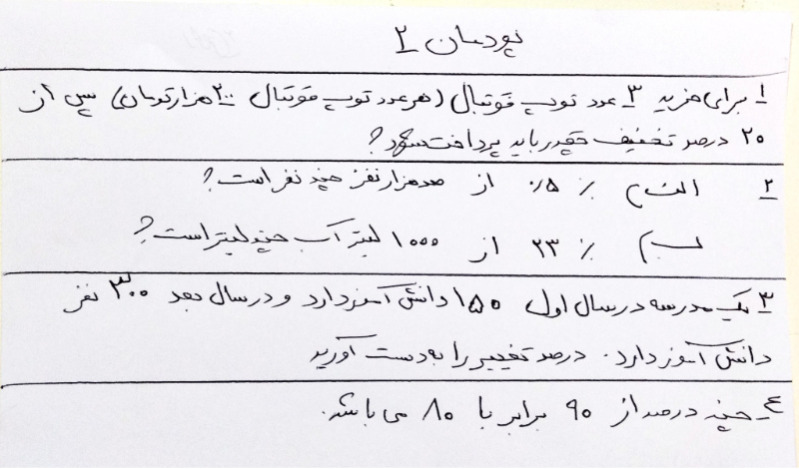 پودمان ۲
۱ـ برای خرید ۳ عدد توپ فوتبال (هر عدد توپ فوتبال ۲۰۰ هزار تومان) پس از
۲۰ درصد تخفیف چقدر باید پرداخت شود؟
۲ الف) ٪ ۰/۵ از صد هزار نفر چند نفر است؟
ب) ٪ ۲۳ از ۱۰۰۰ لیتر آب چند لیتر است؟
۳ـ یک مدرسه در سال اول ۱۵۰ دانش آموز دارد و در سال بعد ۳۰۰ نفر
دانش آموز دارد. درصد تغییر را به دست آورید
۴ـ چند درصد از ۹۰ برابر با ۸۰ می باشد.